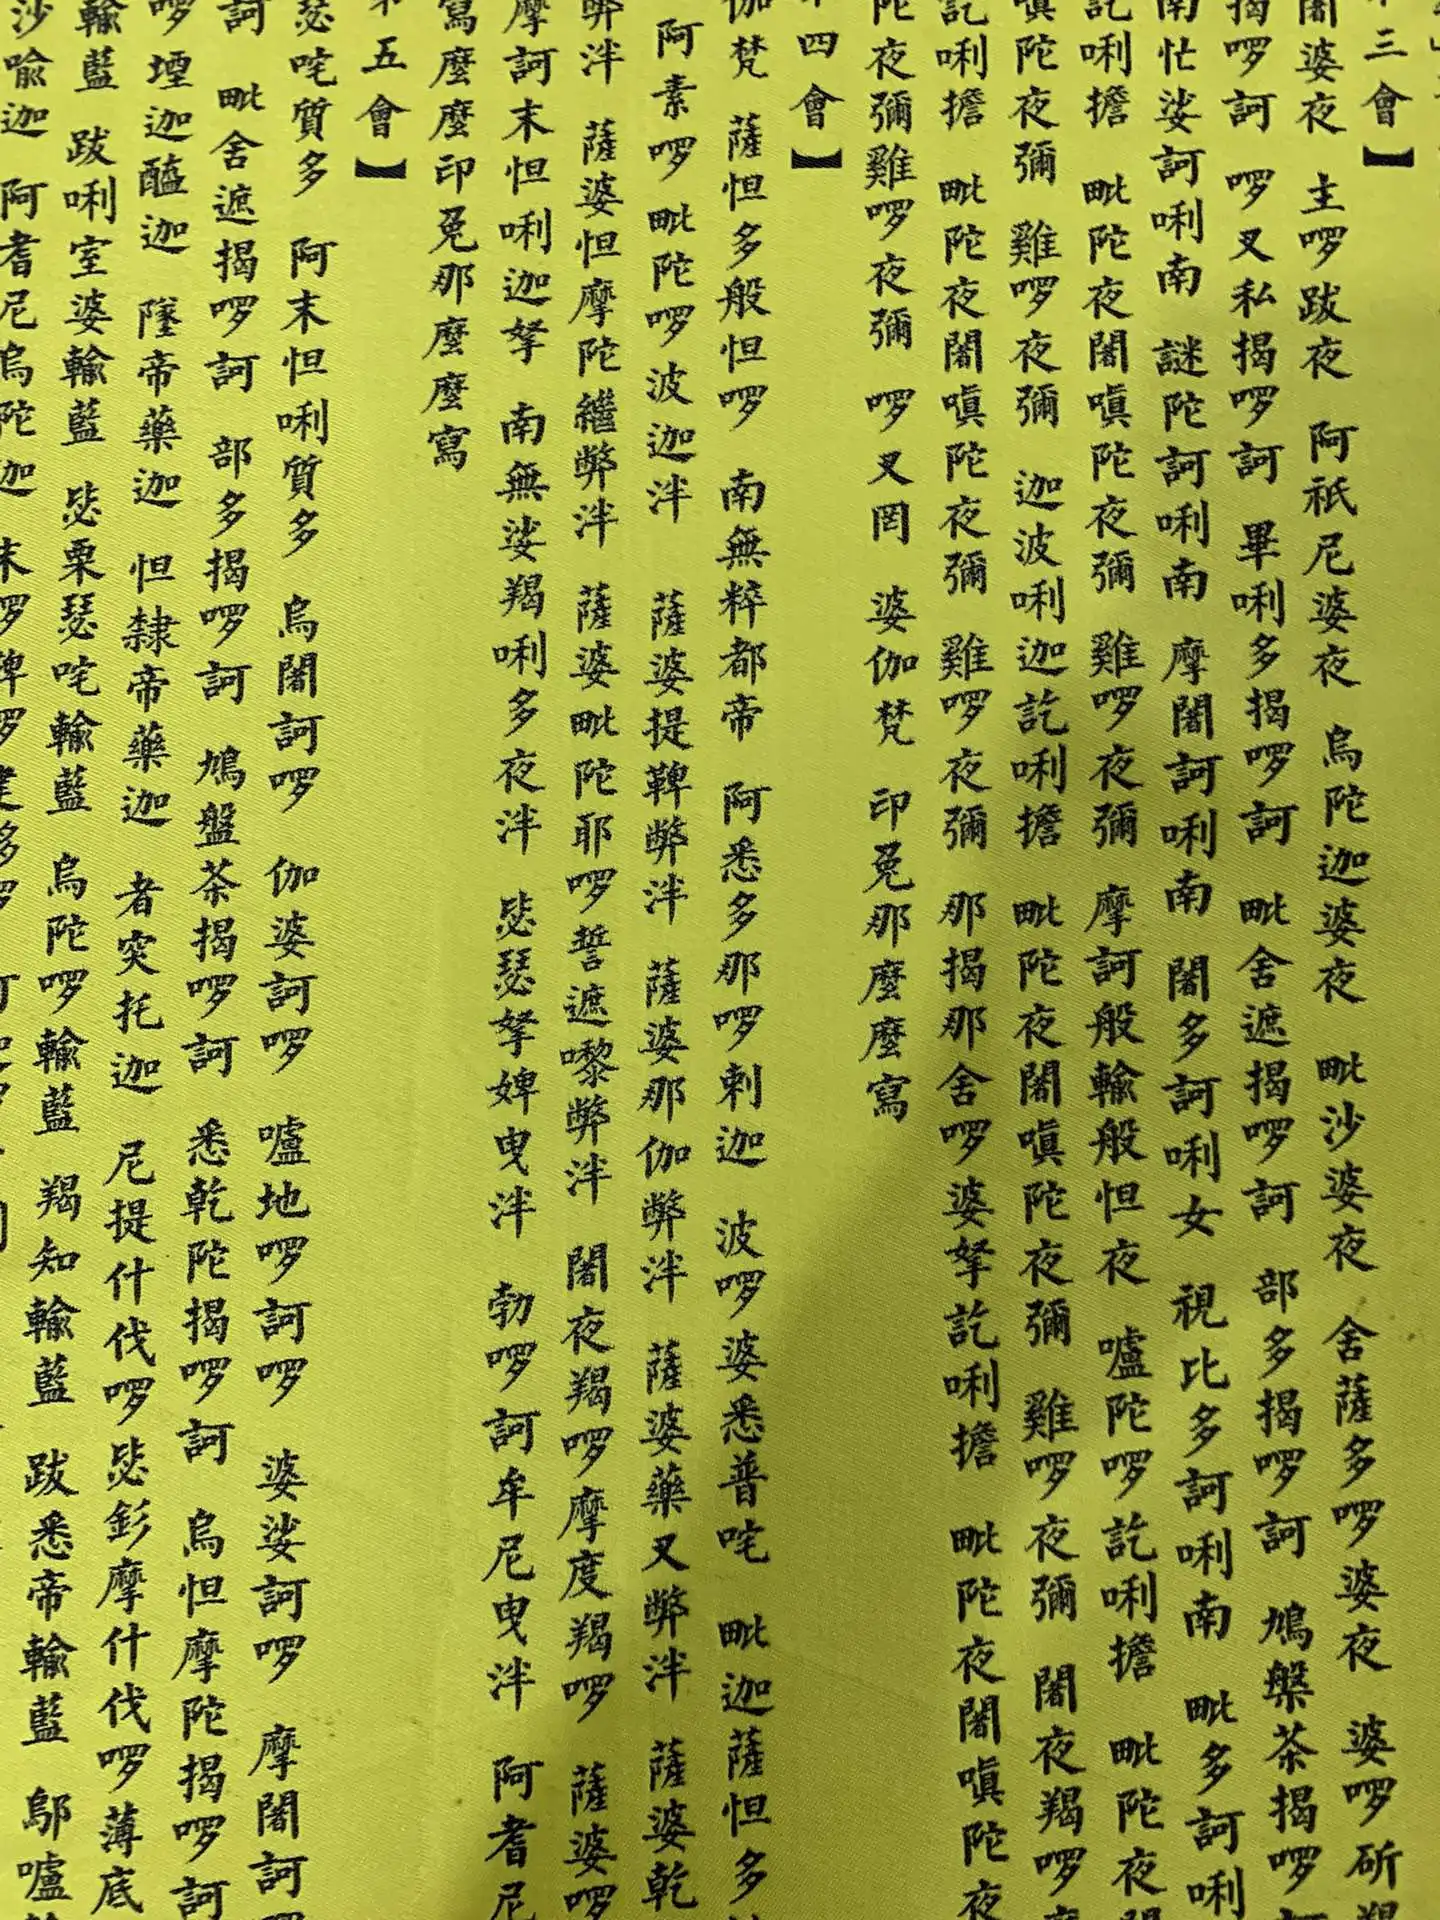 三會】
闍婆夜 主囉跋夜 阿祇尼婆夜 烏陀迦婆夜 毗沙婆夜 舍薩多囉婆夜 婆囉斫羯
揭囉訶 囉叉私揭囉訶 畢唎多揭囉訶 毗舍遮揭囉訶 部多揭囉訶 鳩槃茶揭囉
南忙娑訶唎南 謎陀訶唎南 摩闍訶唎南 闍多訶唎女 視比多訶唎南 毗多訶唎
訖唎擔 毗陀夜闍嗔陀夜彌 雞囉夜彌 摩訶般輸般怛夜 嚧陀囉訖唎擔 毗陀夜闍
嗔陀夜彌 雞囉夜彌 迦波唎迦訖唎擔 毗陀夜闍嗔陀夜彌 雞囉夜彌 闍夜羯囉
訖唎擔 毗陀夜闍嗔陀夜彌 雞囉夜彌 那揭那舍囉婆拏訖唎擔 毗陀夜闍嗔陀夜
陀夜彌雞囉夜彌 囉叉罔 婆伽梵 印兔那麼麼寫
四會】
伽梵 薩怛多般怛囉 南無粹都帝 阿悉多那囉剌迦 波囉婆悉普咤 毗迦薩怛多
阿素囉 毗陀囉波迦泮 薩婆提鞞弊泮 薩婆那伽弊泮 薩婆藥叉弊泮 薩婆乾
弊泮 薩婆怛摩陀繼弊泮 薩婆毗陀耶囉誓遮嚟弊泮 闍夜羯囉摩度羯囉 薩婆囉
摩訶末怛唎迦拏 南無娑羯唎多夜泮 毖瑟拏婢曳泮 勃囉訶牟尼曳泮 阿耆尼
寫麼麼印兔那麼麼寫
五會】
瑟咤質多 阿末怛唎質多 烏闍訶囉 伽婆訶囉 嚧地囉訶囉 婆娑訶囉 摩闍訶
訶 毗舍遮揭囉訶 部多揭囉訶 鳩盤茶揭囉訶 悉乾陀揭囉訶 烏怛摩陀揭囉訶
囉堙迦醯迦 墜帝藥迦 怛隸帝藥迦 者突托迦 尼提什伐囉毖釤摩什伐囉薄底
輸藍 跋唎室婆輸藍 毖栗瑟咤輸藍 烏陀囉輸藍 羯知輸藍 跋悉帝輸藍 鄔嚧
沙喻迦 阿耆尼烏陀迦 末囉鞞囉建多囉